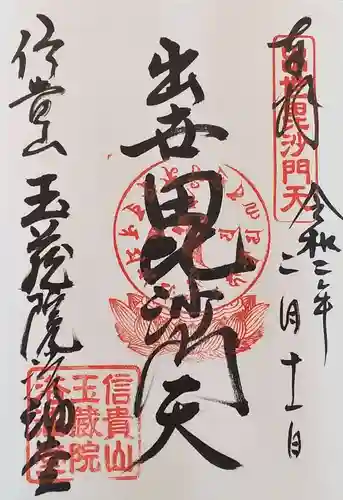 奉拝
出世毘沙門天
令和二年
二月十一日
出世毘沙門天
信貴山
玉蔵院浴油堂
信貴山
玉蔵院
浴油堂